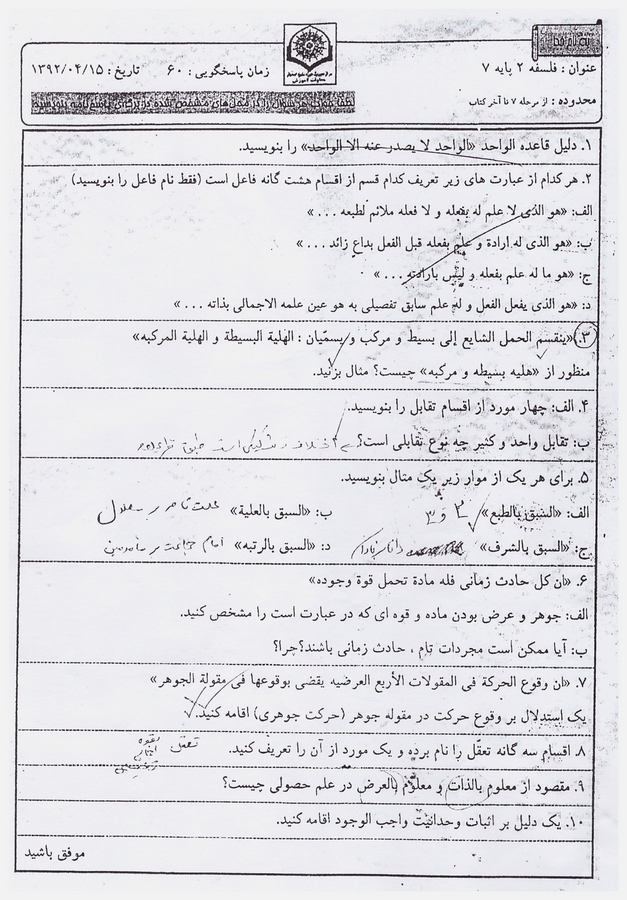 بسم الله
عنوان : فلسفه ۲ پایه ۷
زمان پاسخگویی : ۶۰
تاریخ : ۱۳۹۲/۰۴/۱۵
محدوده : از مرحله ۷ تا آخر کتاب
لطفا جواب هر سوال را در محل‌های مشخص شده در برگه‌ی پاسخ‌نامه بنویسید
۱. دلیل قاعده الواحد «الواحد لا یصدر عنه الا الواحد» را بنویسید.
۲. هر کدام از عبارت های زیر تعریف کدام قسم از اقسام هشت گانه فاعل است (فقط نام فاعل را بنویسید)
الف: «هو الذی لا علم له بفعله و لا فعله ملائم لطبعه . . . »
ب: «هو الذی له ارادة و علم بفعله قبل الفعل بداعٍ زائد . . . »
ج: «هو ما له علم بفعله و لیس بارادته . . . »
د: «هو الذی یفعل الفعل و له علم سابق تفصیلی به هو عین علمه الاجمالی بذاته . . . »
۳. «ینقسم الحمل الشایع إلی بسیط و مرکب و یسمّیان : الهلیة البسیطة و الهلیة المرکبه»
منظور از «هلیه بسیطه و مرکبه» چیست؟ مثال بزنید.
۴. الف: چهار مورد از اقسام تقابل را بنویسید.
ب: تقابل واحد و کثیر چه نوع تقابلی است؟
۵. برای هر یک از موار زیر یک مثال بنویسید.
الف: «السبق بالطبع» ۲ و ۳
ب: «السبق بالعلیة» علت تامه بر معلول
ج: «السبق بالشرف»
د: «السبق بالرتبه» امام جماعت بر مأمومین
۶. «ان کل حادث زمانی فله مادة تحمل قوة وجوده»
الف: جوهر و عرض بودن ماده و قوه ای که در عبارت است را مشخص کنید.
ب: آیا ممکن است مجردات تام ، حادث زمانی باشند؟چرا؟
۷. «ان وقوع الحرکة فی المقولات الأربع العرضیه یقضی بوقوعها فی مقولة الجوهر»
یک استدلال بر وقوع حرکت در مقوله جوهر (حرکت جوهری) اقامه کنید.
۸. اقسام سه گانه تعقّل را نام برده و یک مورد از آن را تعریف کنید. تعقل بقوه
۹. مقصود از معلوم بالذات و معلوم بالعرض در علم حصولی چیست؟
۱۰. یک دلیل بر اثبات وحدانیت واجب الوجود اقامه کنید.
موفق باشید